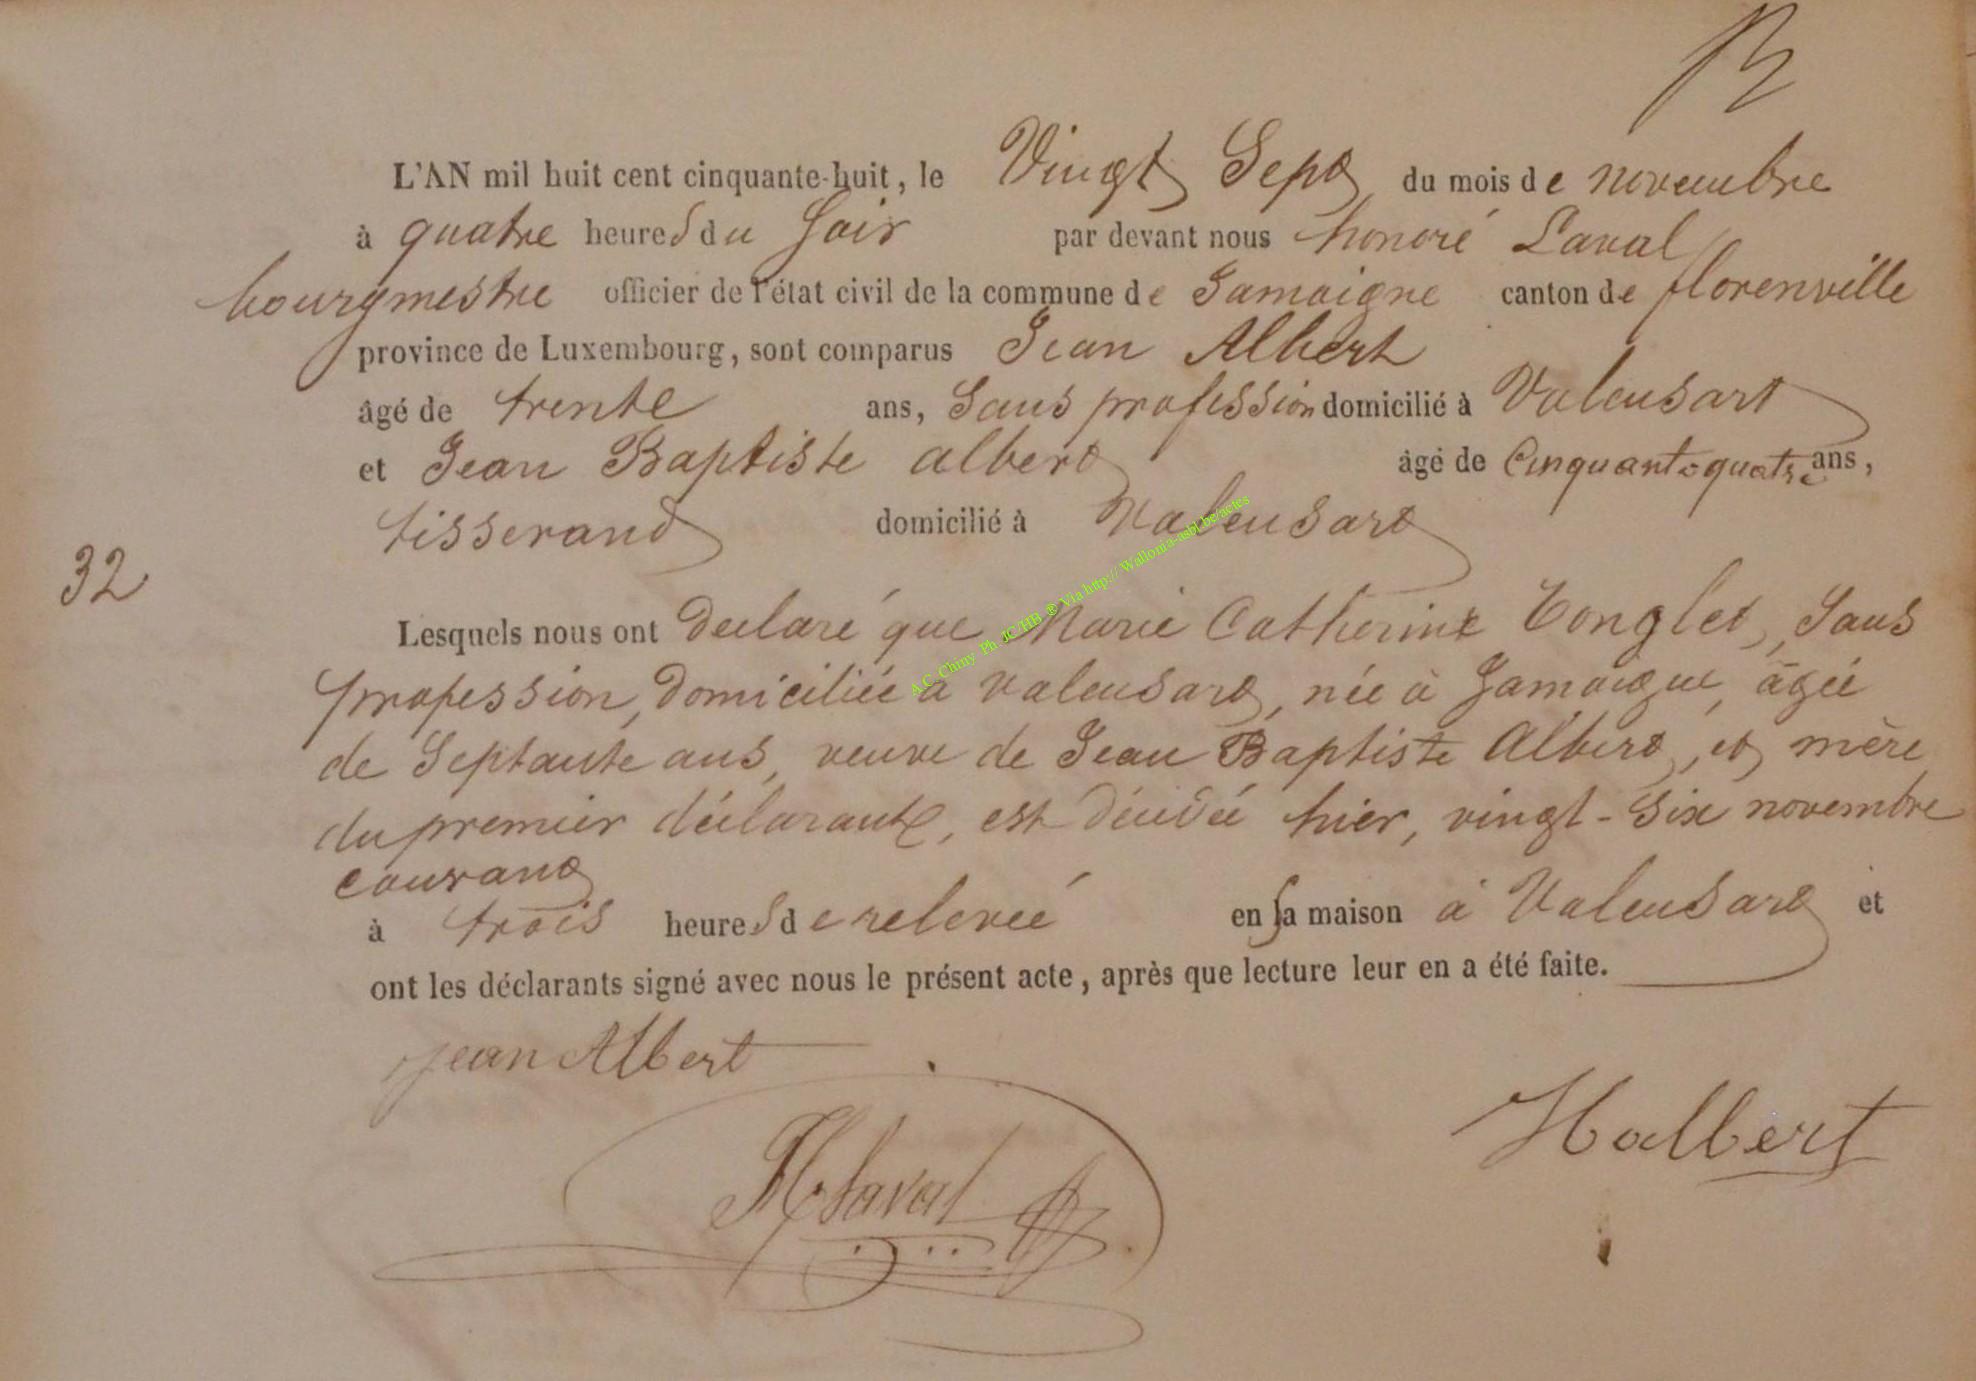 L'AN mil huit cent cinquante-huit, le Vingt Sept du mois de novembre
à quatre heures du Soir par devant nous honoré Laval
bourgmestre officier de l'état civil de la commune de Jamoigne canton de florenville
province de Luxembourg, sont comparus Jean Albert
âgé de trente ans, Sans profession domicilié à Valensart
et Jean Baptiste albert âgé de Cinquante quatre ans,
tisserand domicilié à Valensart
32
Lesquels nous ont Declaré que Marie Catherine Tonglet, Sans
profession, Domiciliée a valensart, née à Jamoigne, âgée
de Septante ans, veuve de Jean Baptiste Albert, et mère
du premier déclarant, est décédée hier, vingt-Six novembre
courant
à trois heures de relevée en sa maison à Valensart et
ont les déclarants signé avec nous le présent acte, après que lecture leur en a été faite.
jean Albert
Halbert
H Laval
A.C. Chiny Ph JC/HB ® Via http://Wallonia-asbl.be/actes